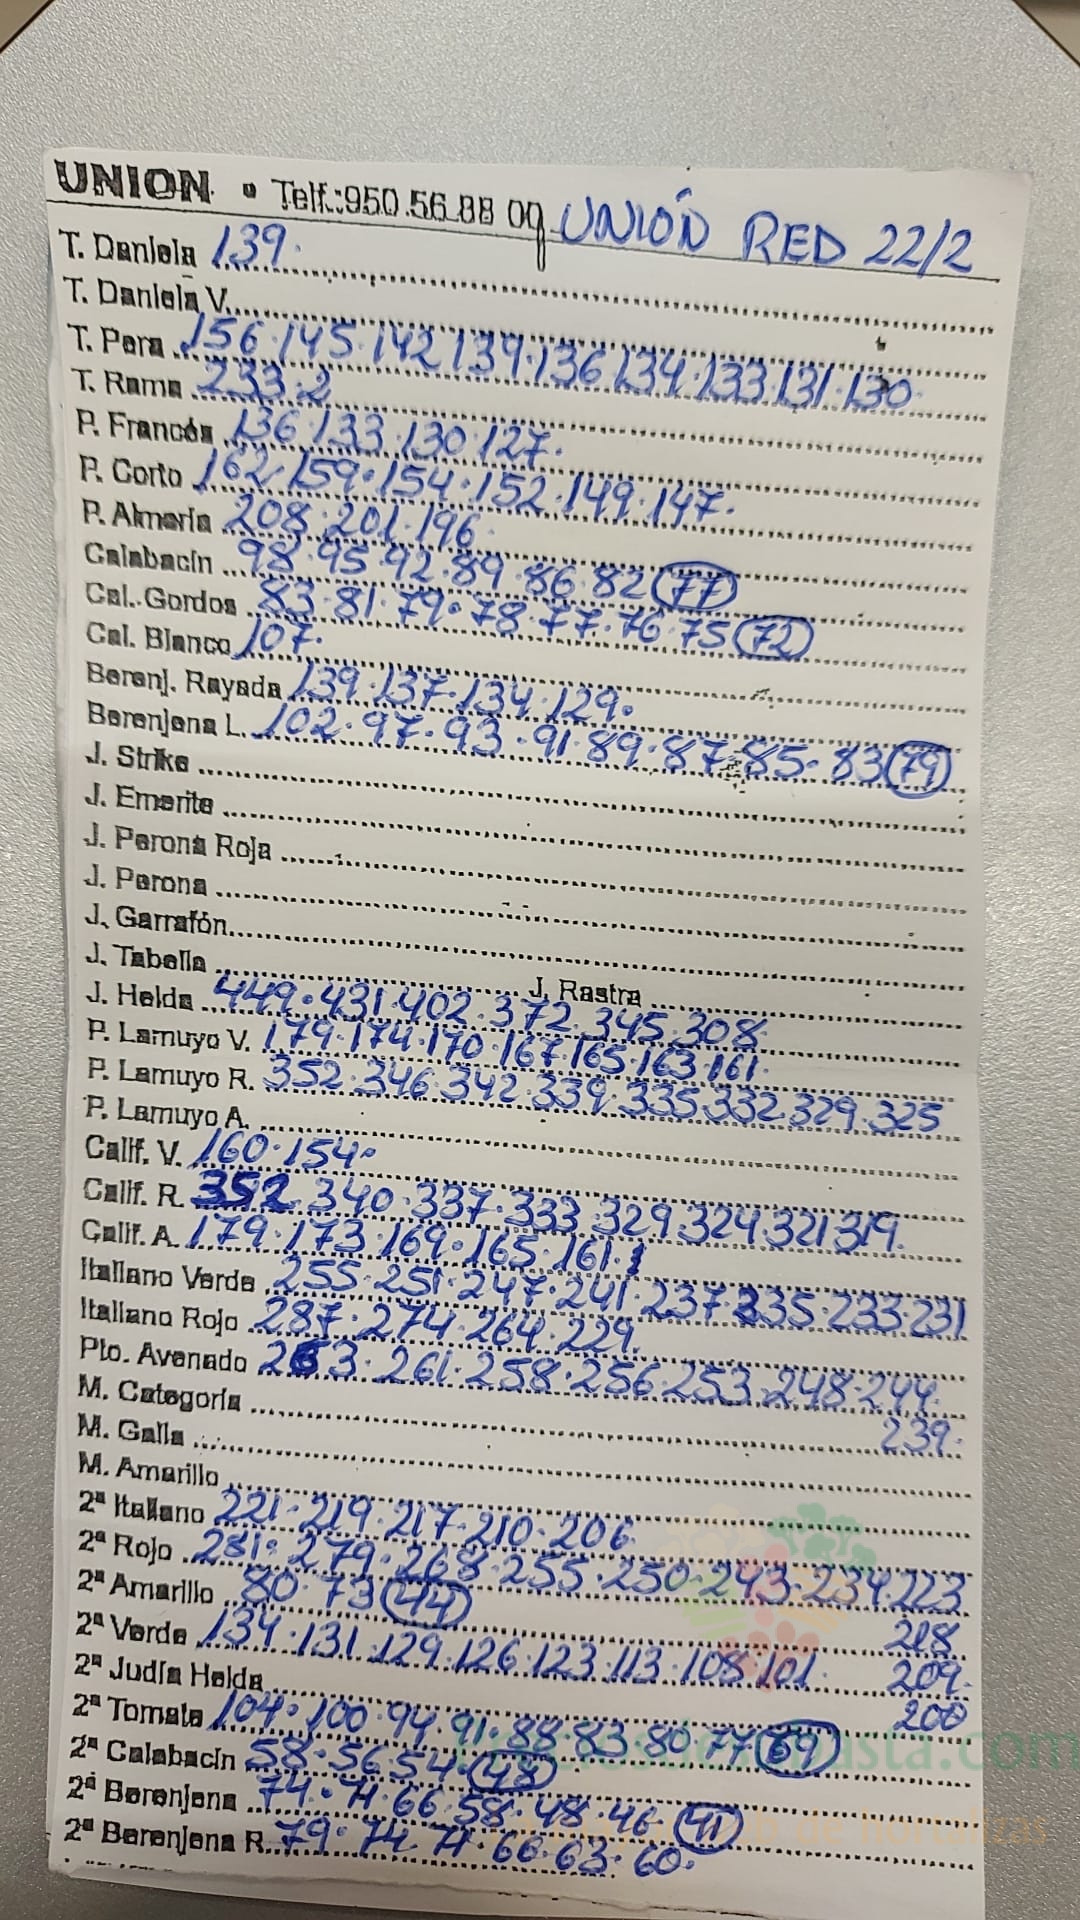 UNION • Telf.:950.56.88 09 UNIÓN RED 22/2
T. Daniela 139.
T. Daniela V.
T. Pera 156.145.142 139.136 134.133.131.130
T. Rama 233.2
P. Francés 136.133.130.127.
P. Corto 162.159.154.152.149.147.
P. Almería 208.201.196
Calabacín 98.95.92.89.86.82 77
Cal. Gordos 83.81.79.78.77.76.75 72
Cal. Blanco 107.
Berenj. Rayada 139.137.134.129.
Berenjena L. 102.97.93.91.89.87.85.83 79
J. Strike
J. Emerite
J. Perona Roja
J. Perona
J. Garrafón
J. Tabella J. Rastra
J. Helda 449.431.402.372.345.308
P. Lamuyo V. 179.174.170.167.165.163.161.
P. Lamuyo R. 352.346.342.339.335.332.329.325
P. Lamuyo A.
Calif. V. 160.154.
Calif. R. 352.340.337.333.329.324.321 319.
Calif. A. 179.173.169.165.161.
Italiano Verde 255.251.247.241.237 235.233.231
Italiano Rojo 287.274.264.229.
Pto. Avenado 261.258.256.253.248.244.
M. Categoría 239.
M. Galia
M. Amarillo
2ª Italiano 221.219.217.210.206
2ª Rojo 281.279.268.255.250.243.234.223
2ª Amarillo 80.73 44 218
2ª Verde 134.131.129.126.123.113.108.101. 209.
2ª Judía Helda 200
2ª Tomate 104.100.94.91.88.83.80.77 69
2ª Calabacín 58.56.54 48
2ª Berenjena 74.71.66.58.48.46 41
2ª Berenjena R. 79.74.71.66.63.60.